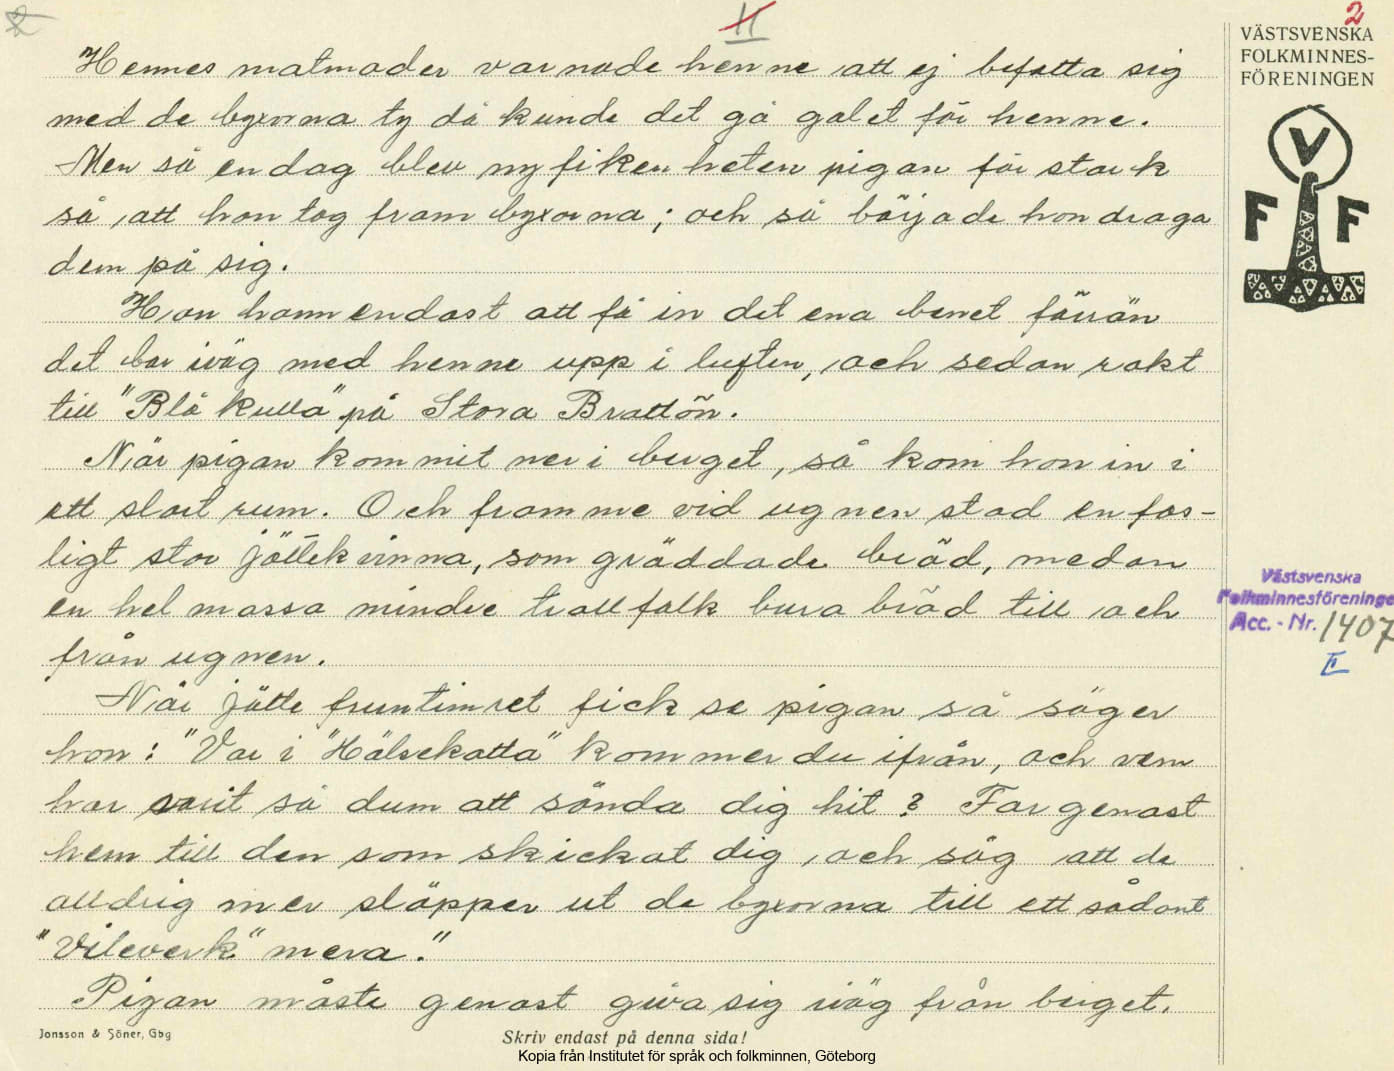 2
11
2
VÄSTSVENSKA
FOLKMINNES-
FÖRENINGEN
V
F F
Hennes matmoder varnade henne att ej befatta sig
med de byxorna ty då kunde det gå galet för henne.
Men så en dag blev nyfikenheten pigan för stark
så att hon tog fram byxorna; och så började hon draga
dem på sig.
Hon hann endast att få in det ena benet förrän
det bar iväg med henne upp i luften, och sedan rakt
till "Blå kulla" på Stora Brattön.
När pigan kommit ner i berget, så kom hon in i
ett stort rum. Och framme vid ugnen stod en fas-
ligt stor jättekvinna, som gräddade bröd, medan
en hel massa mindre trollfolk bura bröd till och
från ugnen.
När jätte fruntimret fick se pigan så säger
hon: "Var i "Hälsekatta" kommer du ifrån, och vem
har varit så dum att sända dig hit? Far genast
hem till den som skickat dig, och säg att de
alldrig mer släpper ut de byxorna till ett sådant
"Vileverk" mera."
Pigan måste genast giva sig iväg från berget.
Västsvenska
Folkminnesföreninge
Acc. - Nr. 1407
E
Jonsson & Söner, Gbg
Skriv endast på denna sida!
Kopia från Institutet för språk och folkminnen, Göteborg